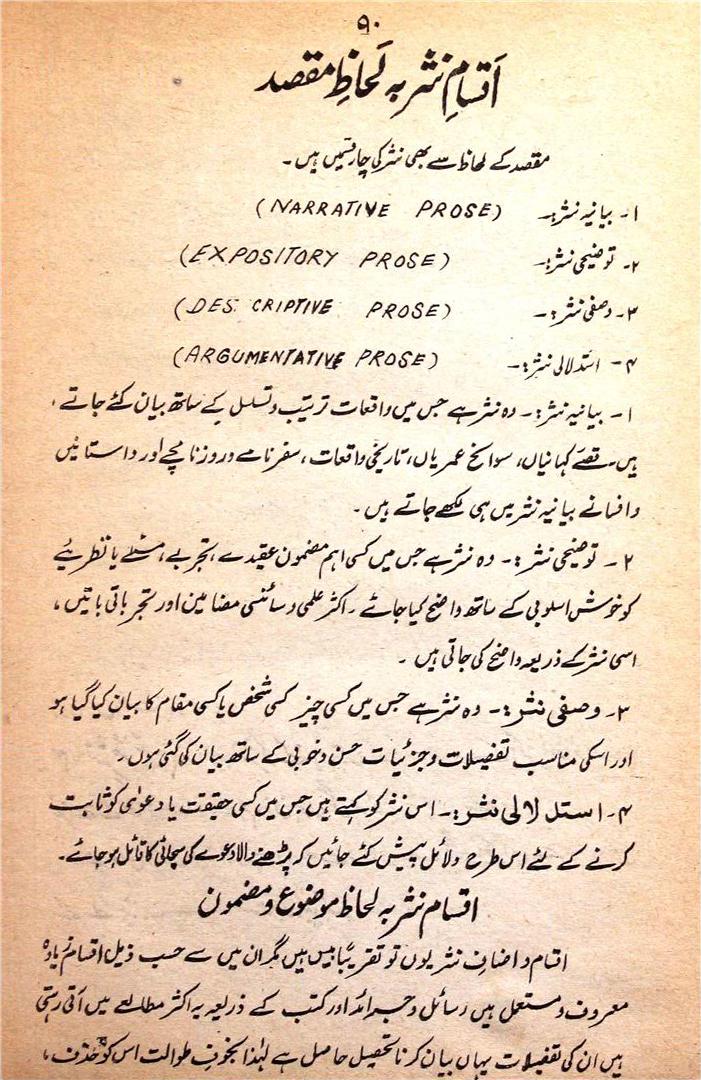 ۹۰
اَقسامِ نثر بہ لَحاظِ مقصد
مقصد کے لحاظ سے بھی نثر کی چار قسمیں ہیں۔
۱۔ بیانیہ نثر:۔ (NARRATIVE PROSE)
۲۔ توضیحی نثر:۔ (EXPOSITORY PROSE)
۳۔ وصفی نثر:۔ (DESCRIPTIVE PROSE)
۴۔ استدلالی نثر:۔ (ARGUMENTATIVE PROSE)
۱۔ بیانیہ نثر:۔ وہ نثر ہے جس میں واقعات ترتیب و تسلسل کے ساتھ بیان کئے جاتے
ہیں۔ قصے کہانیاں، سوانح عمریاں، تاریخی واقعات، سفر نامے و روزنامچے اور داستانیں
و افسانے بیانیہ نثر میں ہی لکھے جاتے ہیں۔
۲۔ توضیحی نثر:۔ وہ نثر ہے جس میں کسی اہم مضمون عقیدے، تجربے، مسئلے یا نظریئے
کو خوش اسلوبی کے ساتھ واضح کیا جائے۔ اکثر علمی و سائنسی مضامین اور تجرباتی باتیں،
اسی نثر کے ذریعہ واضح کی جاتی ہیں۔
۳۔ وصفی نثر:۔ وہ نثر ہے جس میں کسی چیز کسی شخص یا کسی مقام کا بیان کیا گیا ہو
اور اسکی مناسب تفصیلات و جزئیات حسن و خوبی کے ساتھ بیان کی گئی ہوں۔
۴۔ استدلالی نثر:۔ اس نثر کو کہتے ہیں جس میں کسی حقیقت یا دعویٰ کو ثابت
کرنے کے لئے اس طرح دلائل پیش کئے جائیں کہ پڑھنے والا دعوے کی سچائی کا قائل ہو جائے۔
اقسام نثر بہ لحاظ موضوع و مضمون
اقسام و اضاف نثر یوں تو تقریباً بیس ہیں مگر ان میں سے حسب ذیل اقسام زیادہ
معروف و مستعمل ہیں رسائل و جرائد اور کتب کے ذریعہ یہ اکثر مطالعے میں آتی رہتی
ہیں ان کی تفصیلات یہاں بیان کرنا تحصیل حاصل ہے لہٰذا بخوفِ طوالت اس کو حذف،